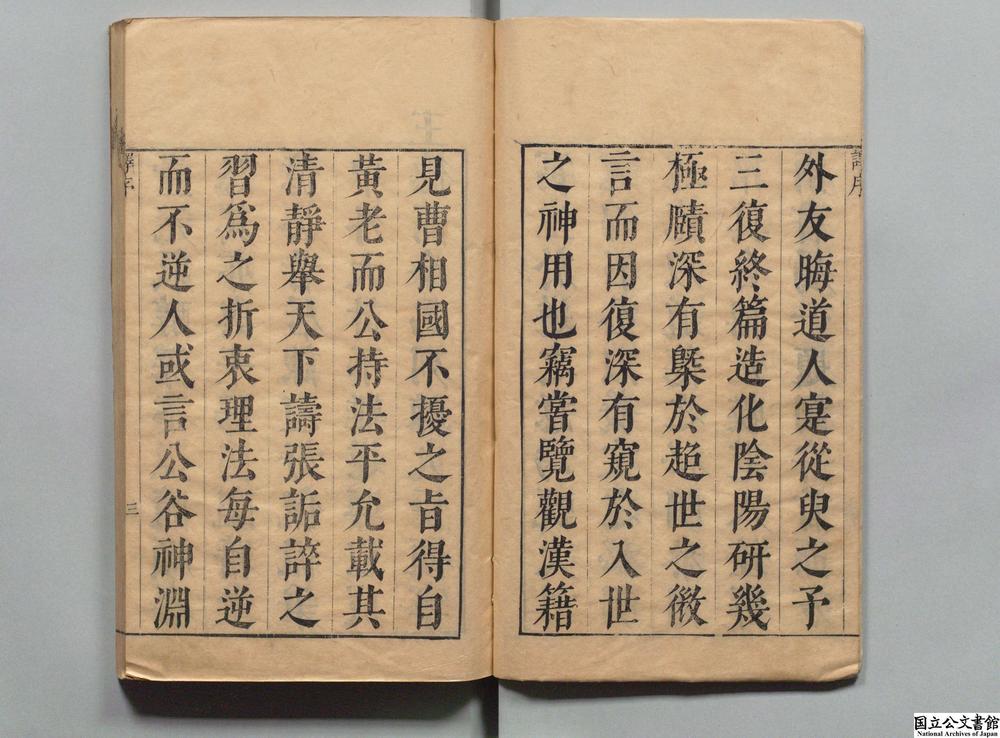 外友晦道人寔從臾之予
三復終篇造化陰陽研幾
極賾深有槩於超世之微
言而因復深有窺於入世
之神用也竊嘗覽觀漢籍
見曹相國不擾之旨得自
黃老而公持法平允載其
清靜舉天下譸張詬誶之
習爲之折衷理法每自逆
而不逆人或言公谷神淵
三
国立公文書館
National Archives of Japan